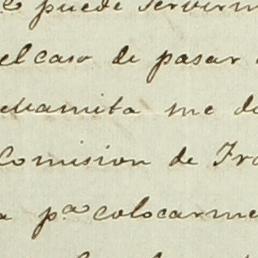 puede servirm
el caso de pasar
Mamita me de
Comision de Fra
a p.ª colocarme